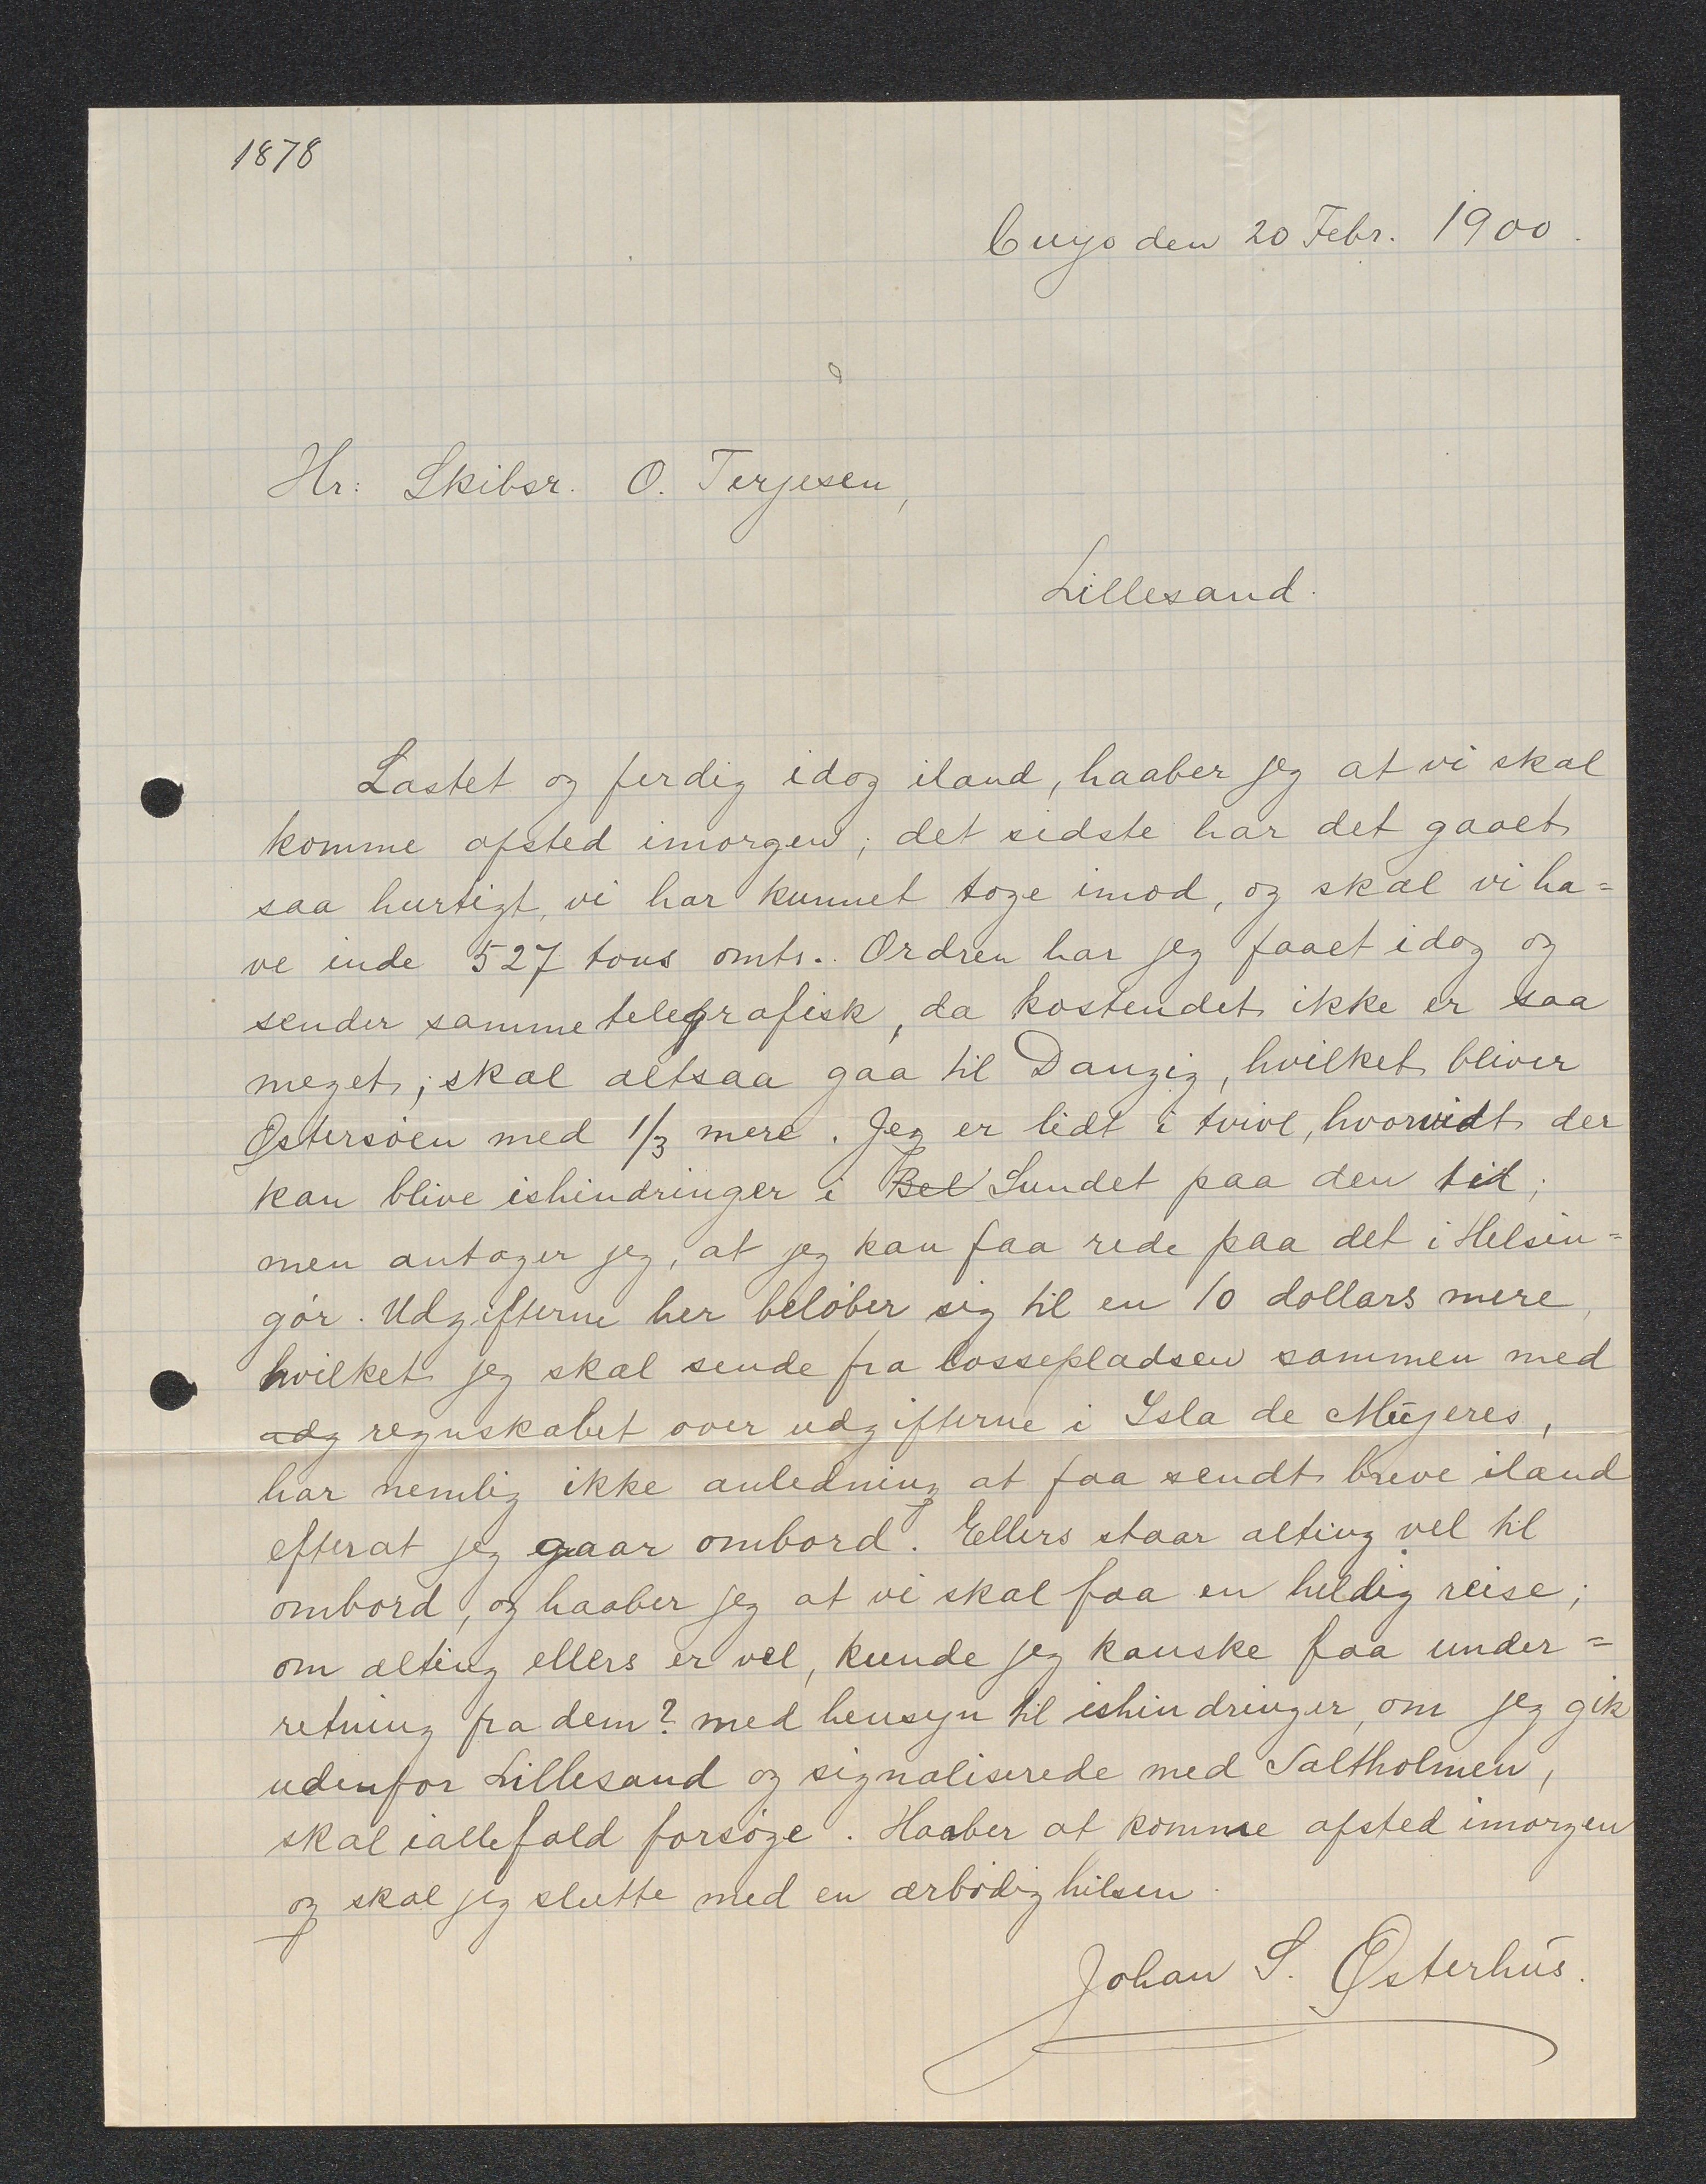 1878
Cuyo den 20 Febr. 1900.
Hr: Skibsr. O. Terjesen,
Lillesand.
Lastet og ferdig idag iland, haaber jeg at vi skal
komme afsted imorgen; det sidste har det gaaet
saa hurtigt, vi har kunnet tage imod, og skal vi ha=
ve inde 527 tons omtr.. Ordren har jeg faaet idag og
sender samme telegrafisk, da kostendet ikke er saa
meget; skal altsaa gaa til Danzig, hvilket bliver
Østersöen med 1/3 mere. Jeg er lidt i tvivl, hvorvidt der
kan blive ishindringer i Bel Sundet paa den tid;
men antager jeg, at jeg kan faa rede paa det i Helsin=
gör. Udgifterne her belöber sig til en 10 dollars mere,
hvilket jeg skal sende fra lossepladsen sammen med
udg regnskabet over udgifterne i Isla de Mujeres,
har nemlig ikke anledning at faa sendt breve iland
efterat jeg gaar ombord. Ellers staar alting vel til
ombord, og haaber jeg at vi skal faa en heldig reise;
om alting ellers er vel, kunde jeg kanske faa under=
retning fra dem? med hensyn til ishindringer, om jeg gik
udenfor Lillesand og signaliserede med Saltholmen,
skal iallefald forsöge. Haaber at komme afsted imorgen
og skal jeg slutte med en ærbödig hilsen.
Johan S. Østerhus.